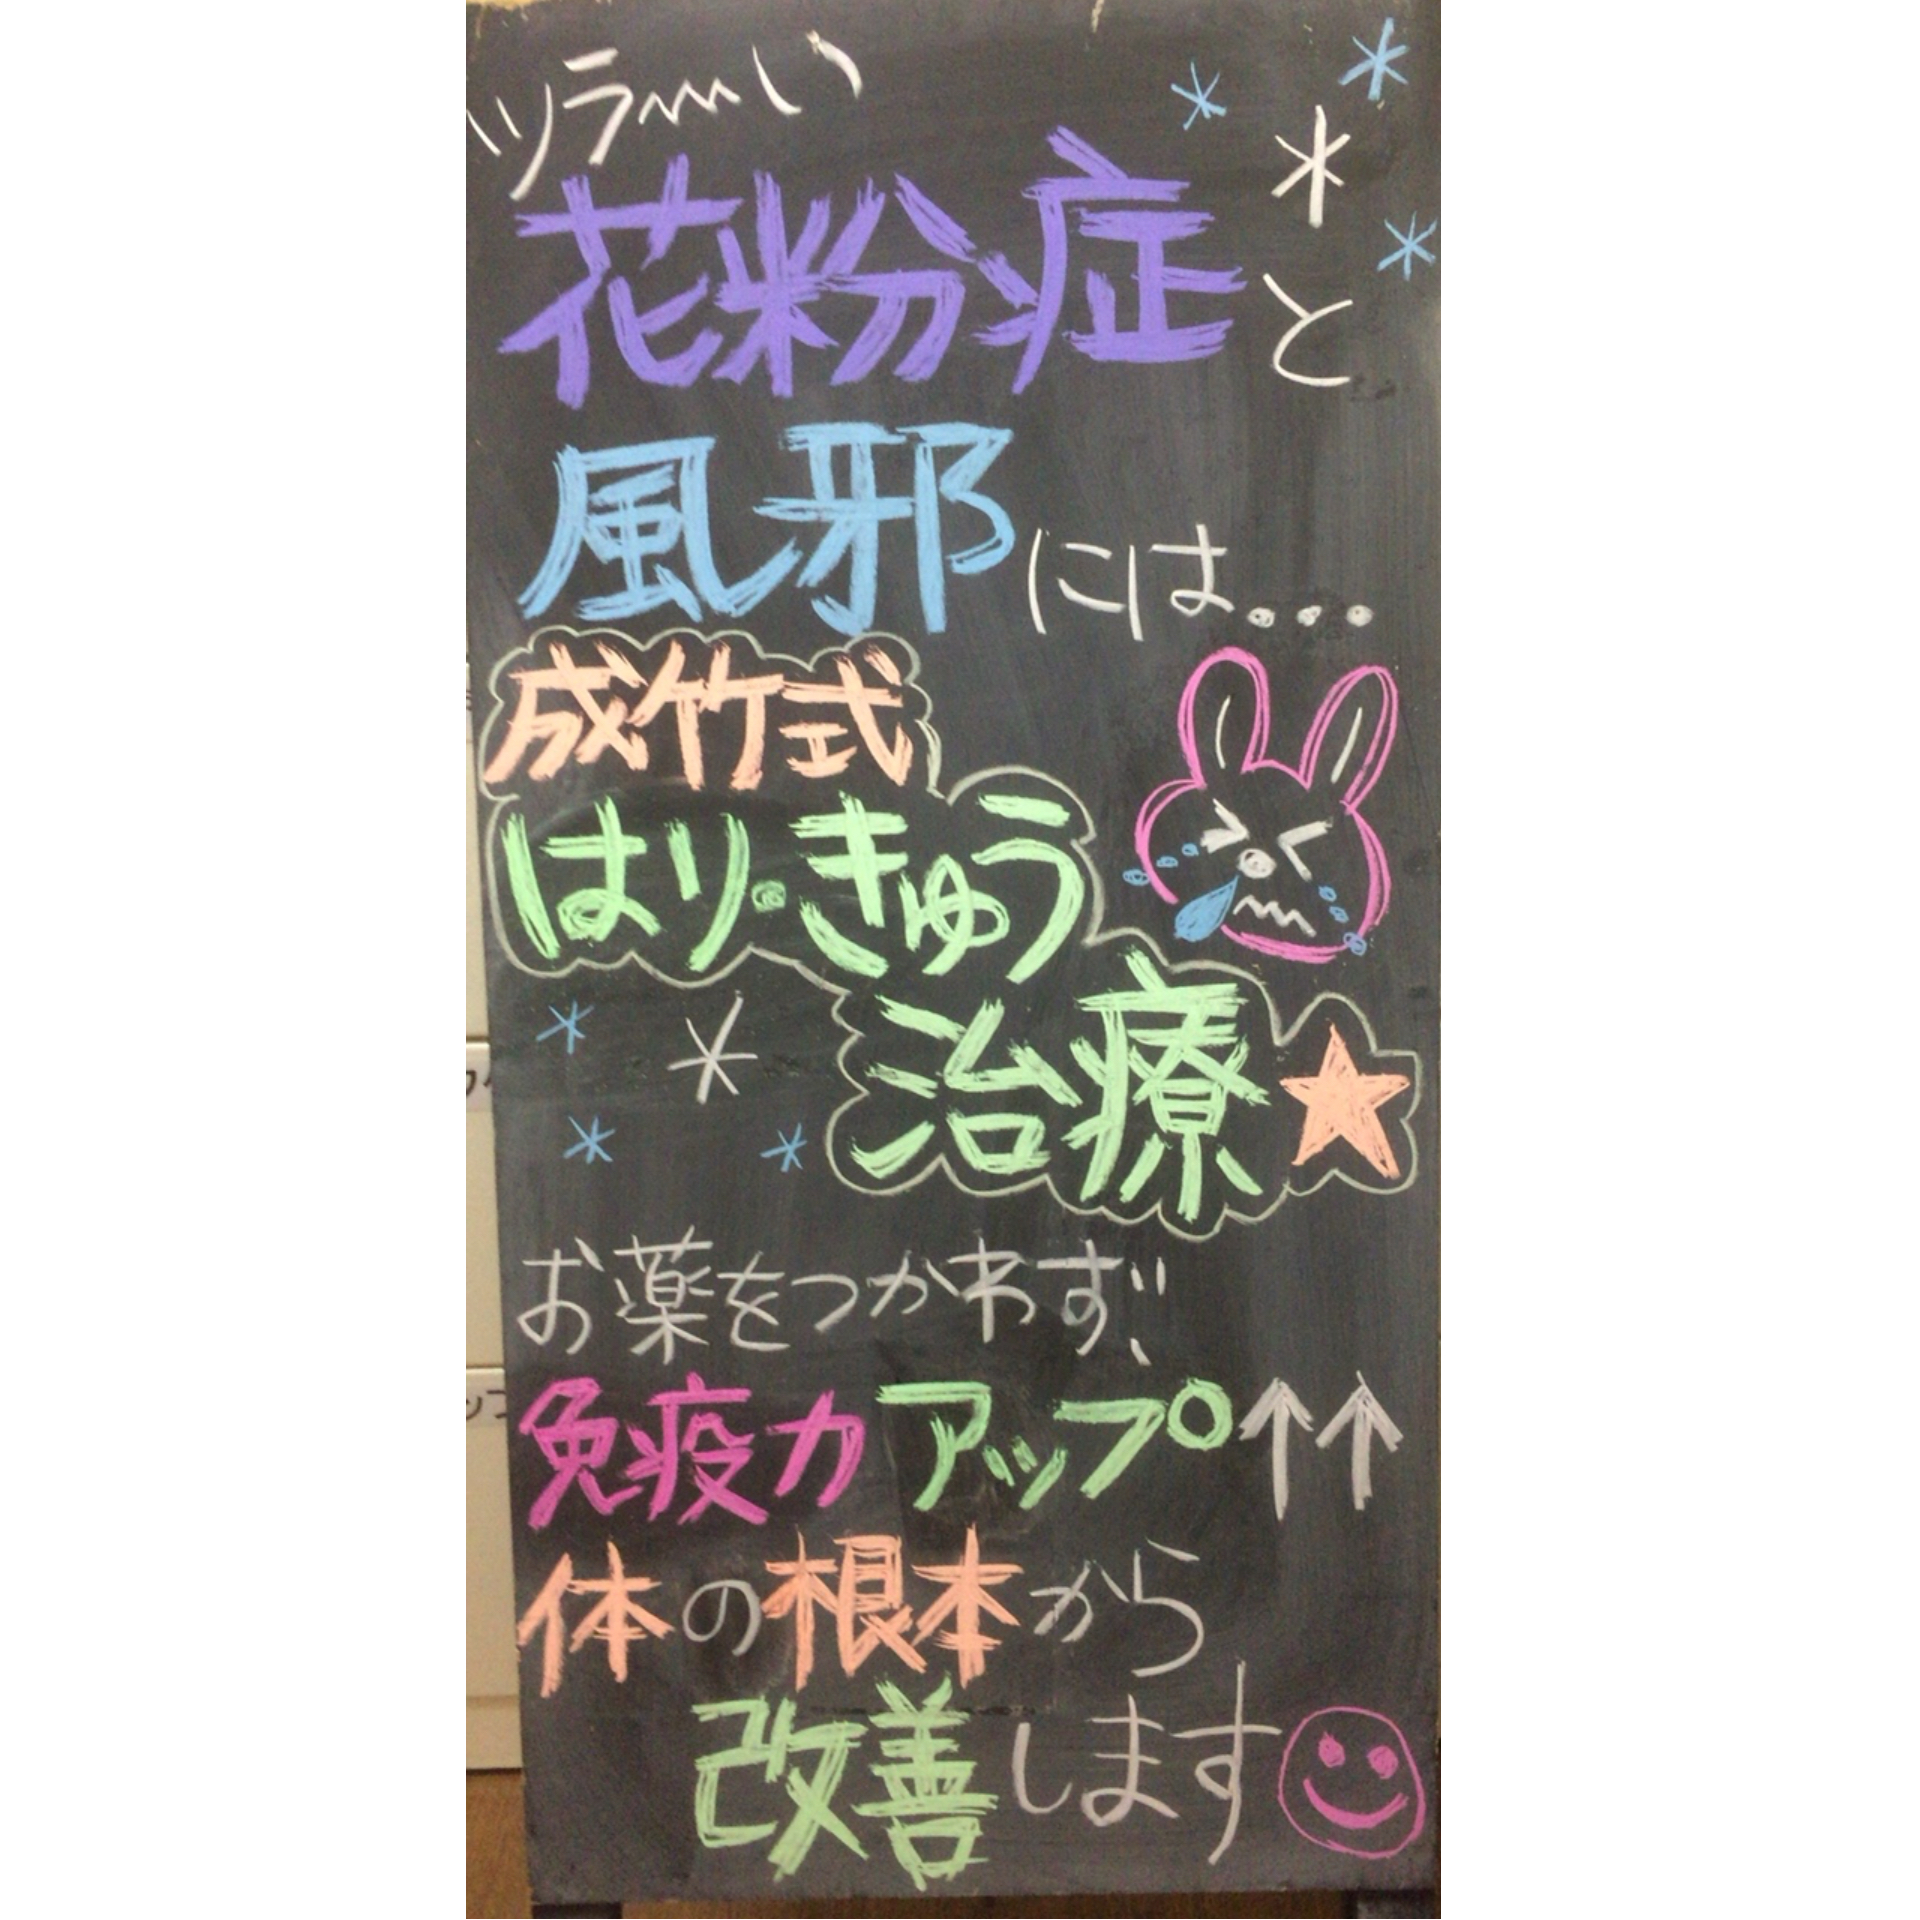 ツラ〜い
花粉症と
風邪には...
成竹式
はり・きゅう
治療★
お薬をつかわず、
免疫力アップ↑↑
体の根本から
改善します